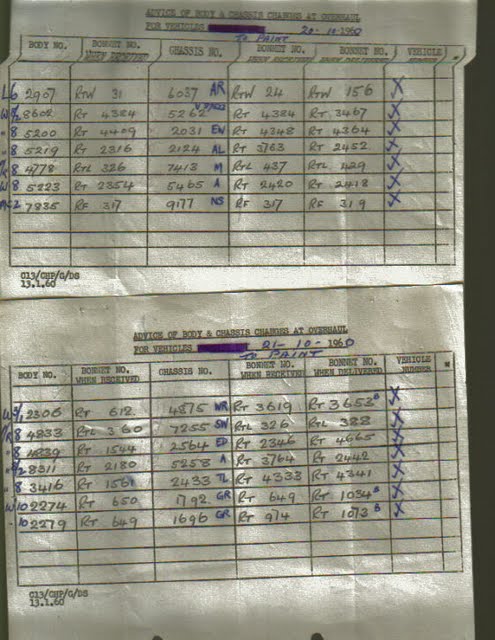 ADVICE OF BODY & CHASSIS CHANGES AT OVERHAUL
FOR VEHICLES 20-10-1960
TO PAINT
BODY NO. BONNET NO. WHEN RECEIVED CHASSIS NO. BONNET NO. WHEN RECEIVED BONNET NO. WHEN DELIVERED VEHICLE NUMBER
L6 2907 RTW 31 6037 AR RTW 24 RTW 156 X
8602 RT 4384 5262 RT 4384 RT 3467 X
" 8 5200 RT 4409 2031 EW RT 4348 RT 4364 X
" 8 5219 RT 2316 2124 AL RT 3763 RT 2452 X
8 4778 RTL 326 7413 M RTL 437 RTL 429 X
W 8 5223 RT 2354 5465 A RT 2420 RT 2418 X
2 7835 RF 317 9177 NS RF 317 RF 319 X
C13/CHP/G/DS
13.1.60
ADVICE OF BODY & CHASSIS CHANGES AT OVERHAUL
FOR VEHICLES 21-10-1960
TO PAINT
BODY NO. BONNET NO. WHEN RECEIVED CHASSIS NO. BONNET NO. WHEN RECEIVED BONNET NO. WHEN DELIVERED VEHICLE NUMBER
2306 RT 612 4875 WR RT 3619 RT 3652 B X
8 4833 RTL 360 7255 SW RTL 326 RTL 388 X
" 8 4839 RT 1544 2564 ED RT 2346 RT 4665 X
8311 RT 2180 5258 A RT 3764 RT 2442 X
" 8 3416 RT 1561 2433 TL RT 4333 RT 4341 X
W 10 2274 RT 650 1792 GR RT 649 RT 1034 B X
10 2279 RT 649 1696 GR RT 974 RT 1073 B X
C13/CHP/G/DS
13.1.60